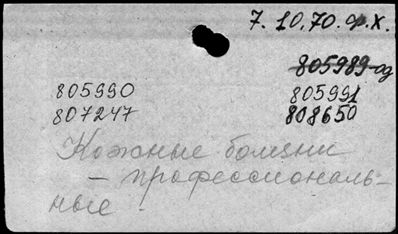 7. 10.70. ф.х.
805989-од
805990 805991
807247 808650
Кожные болезни
– профессиональ-
ные.